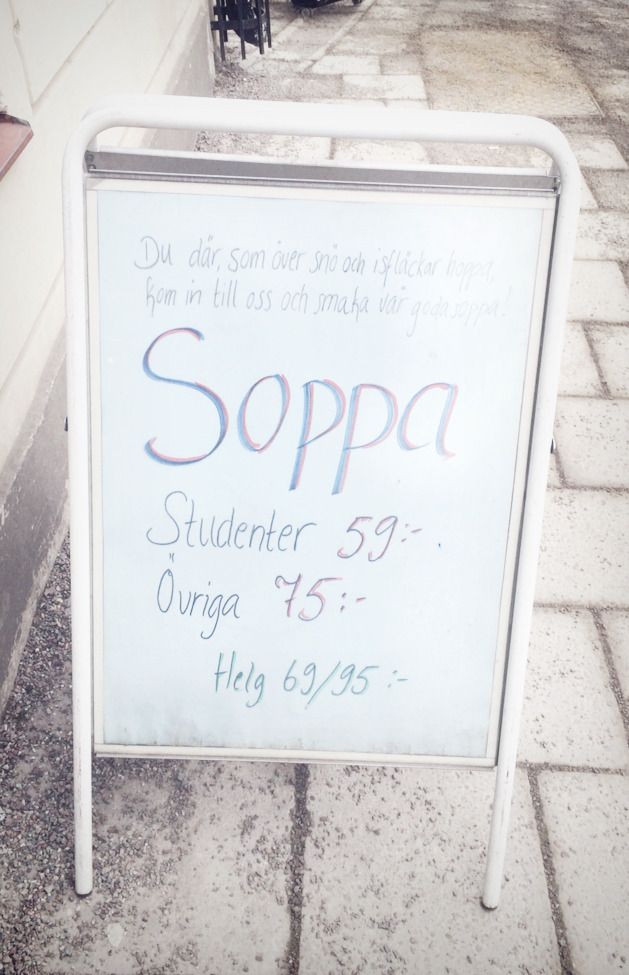 Du där, som över snö och isfläckar hoppa,
kom in till oss och smaka vår goda soppa!
Soppa
Studenter 59:-
Övriga 75:-
Helg 69/95:-